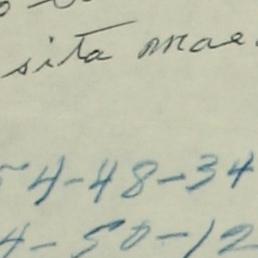 sita mae.
54-48-34
4-50-12